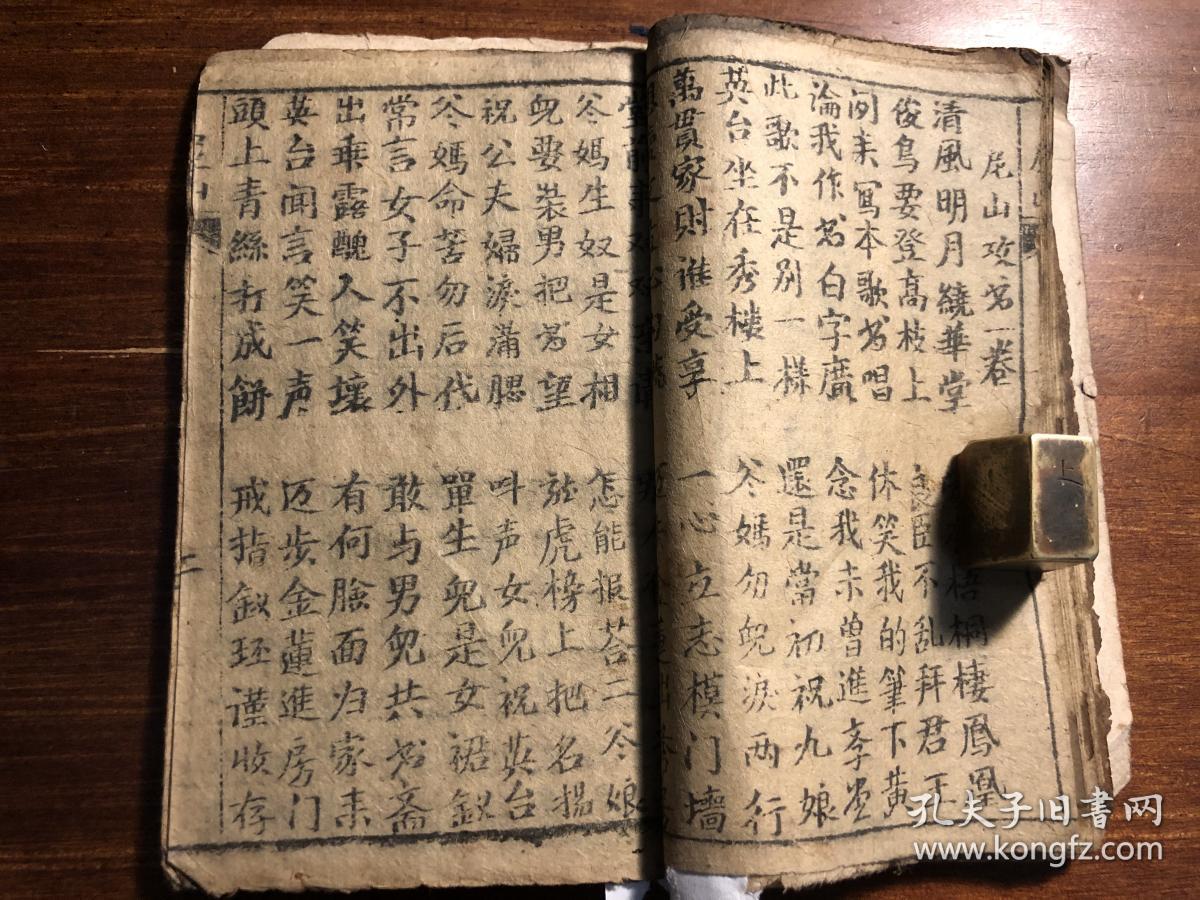 尼山攻书一卷
清風明月繞華堂 梧桐棲鳳凰
俊鳥要登高枝上 臣不乱拜君王
闲来寫本歌书唱 休笑我的筆下黄
淪我作书白字廣 念我未曾進孝堂
此歌不是别一樣 還是當初祝九娘
英台坐在秀楼上 爷媽勿兒淚两行
萬貫家財谁受享 一心立志模门墙
堂前
爷媽生奴是女相 怎能报荅二爷娘
兒娶装男把书望 龍虎榜上把名揚
祝公夫婦淚满腮 叫声女兒祝英台
爷媽命苦勿后代 單生兒是女裙釵
常言女子不出外 敢与男兒共书斋
出乖露醜人笑壞 有何臉面归家来
英台闻言笑一声 迈步金蓮進房门
頭上青絲打成餅 戒指釵环谨收存
上
孔夫子旧書网
www.kongfz.com